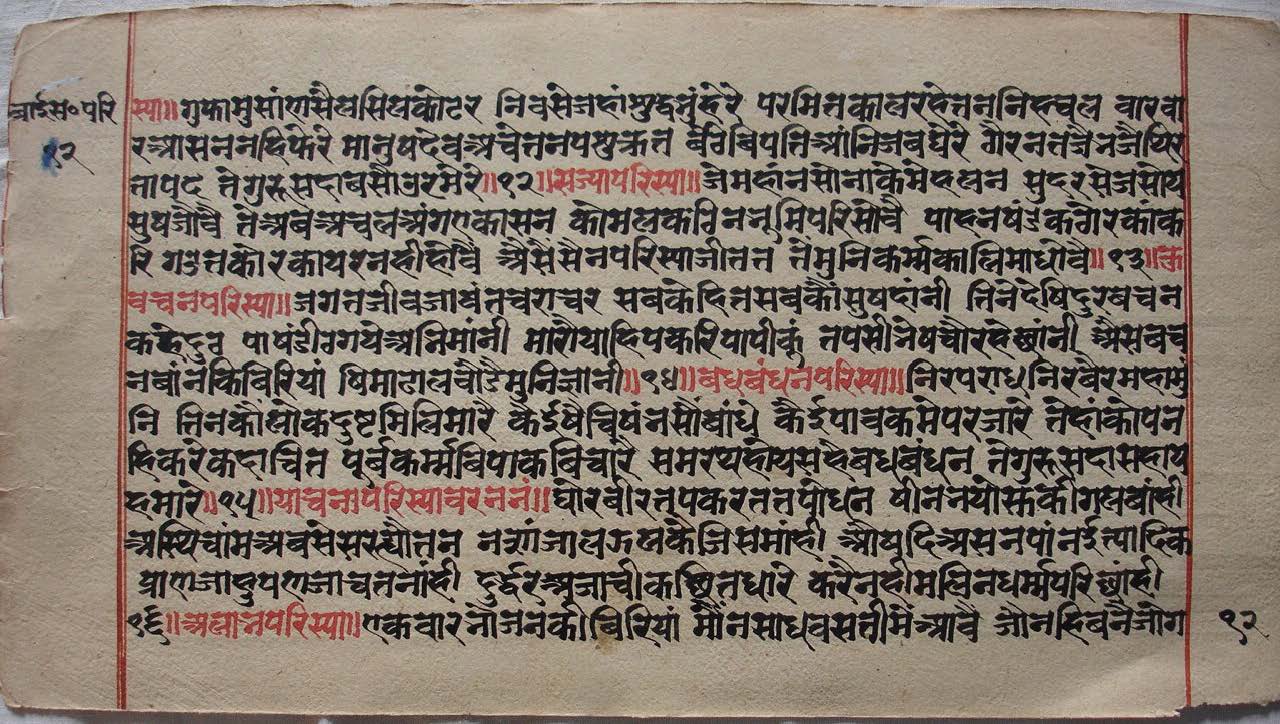 बाईस॰परि
१२
स्या॥ गुफामुसांणसैलसिलकोटर निवसेजहांसुद्धभुंहेरे परमितकालरहेतननिहचल वारवा
रआसननहिफेरे मानुषदेवअचेतनपसुकृत बैठेबिपतिआंनिजबघेरे ठौरनतजेनजैथिर
तापद तेगुरुसदाबसौउरमेरे॥१२॥सज्यापरिस्या॥ जेमहांनसोनाकेमेहलन सुंदरसेजसोय
सुषजोवै तेअबअचलअंगएकासन कोमलकठिनभूमिपरिसोवै पाहनषंडकठोरकांक
रि गडतकोरकायरनहीहोवै अैसैसैनपरिस्याजीतत तेमुनिकर्म्मकालिमाधोवै॥१३॥कु
वचनपरिस्या॥ जगतजीवजावंतचराचर सबकेहितसबकौंसुषदांनी तिनेदेषिदुरबचन
कहेदुठ पाषंडीठगयेअभिमांनी मारौयाहिपकरिपापीकूं तपसीभेषचौरहेछांनी अैसेबच
नबांनकिबिरियां षिमाढालवौढैमुनिज्ञानी॥१४॥बधबंधनपरिस्या॥ निरपराधनिरबैरमहामुं
नि तिनकौलोकदुष्टमिलिमारै कैईषैचिषंनसौंबांधे कैईपावकमेपरजारे तेहांकोपन
हिकरेकदाचित पूर्बकर्म्मबिपाकबिचारै समरथहोयसहैबधबंधन तेगुरुसदासहाय
हमारे॥१५॥याचनापरिस्यावरननं॥ घोरबीरतपकरततपोधन षीनभयोसूकीगलबांही
अस्थिचांमअवसेसरह्यौतन नसांजालझलकेजिसमांही औषदिअसनपांनईत्यादिक
प्राणजाहुपणजाचतनांही दुर्द्धरअजाचीकब्रितधारे करैनहीमलिनधर्म्मपरिछांही
१६॥अलाभपरिस्या॥ एकबारभोजनकीबिरियां मौंनसाधबसतीमेआवै जौनहिबनैजोग
१२